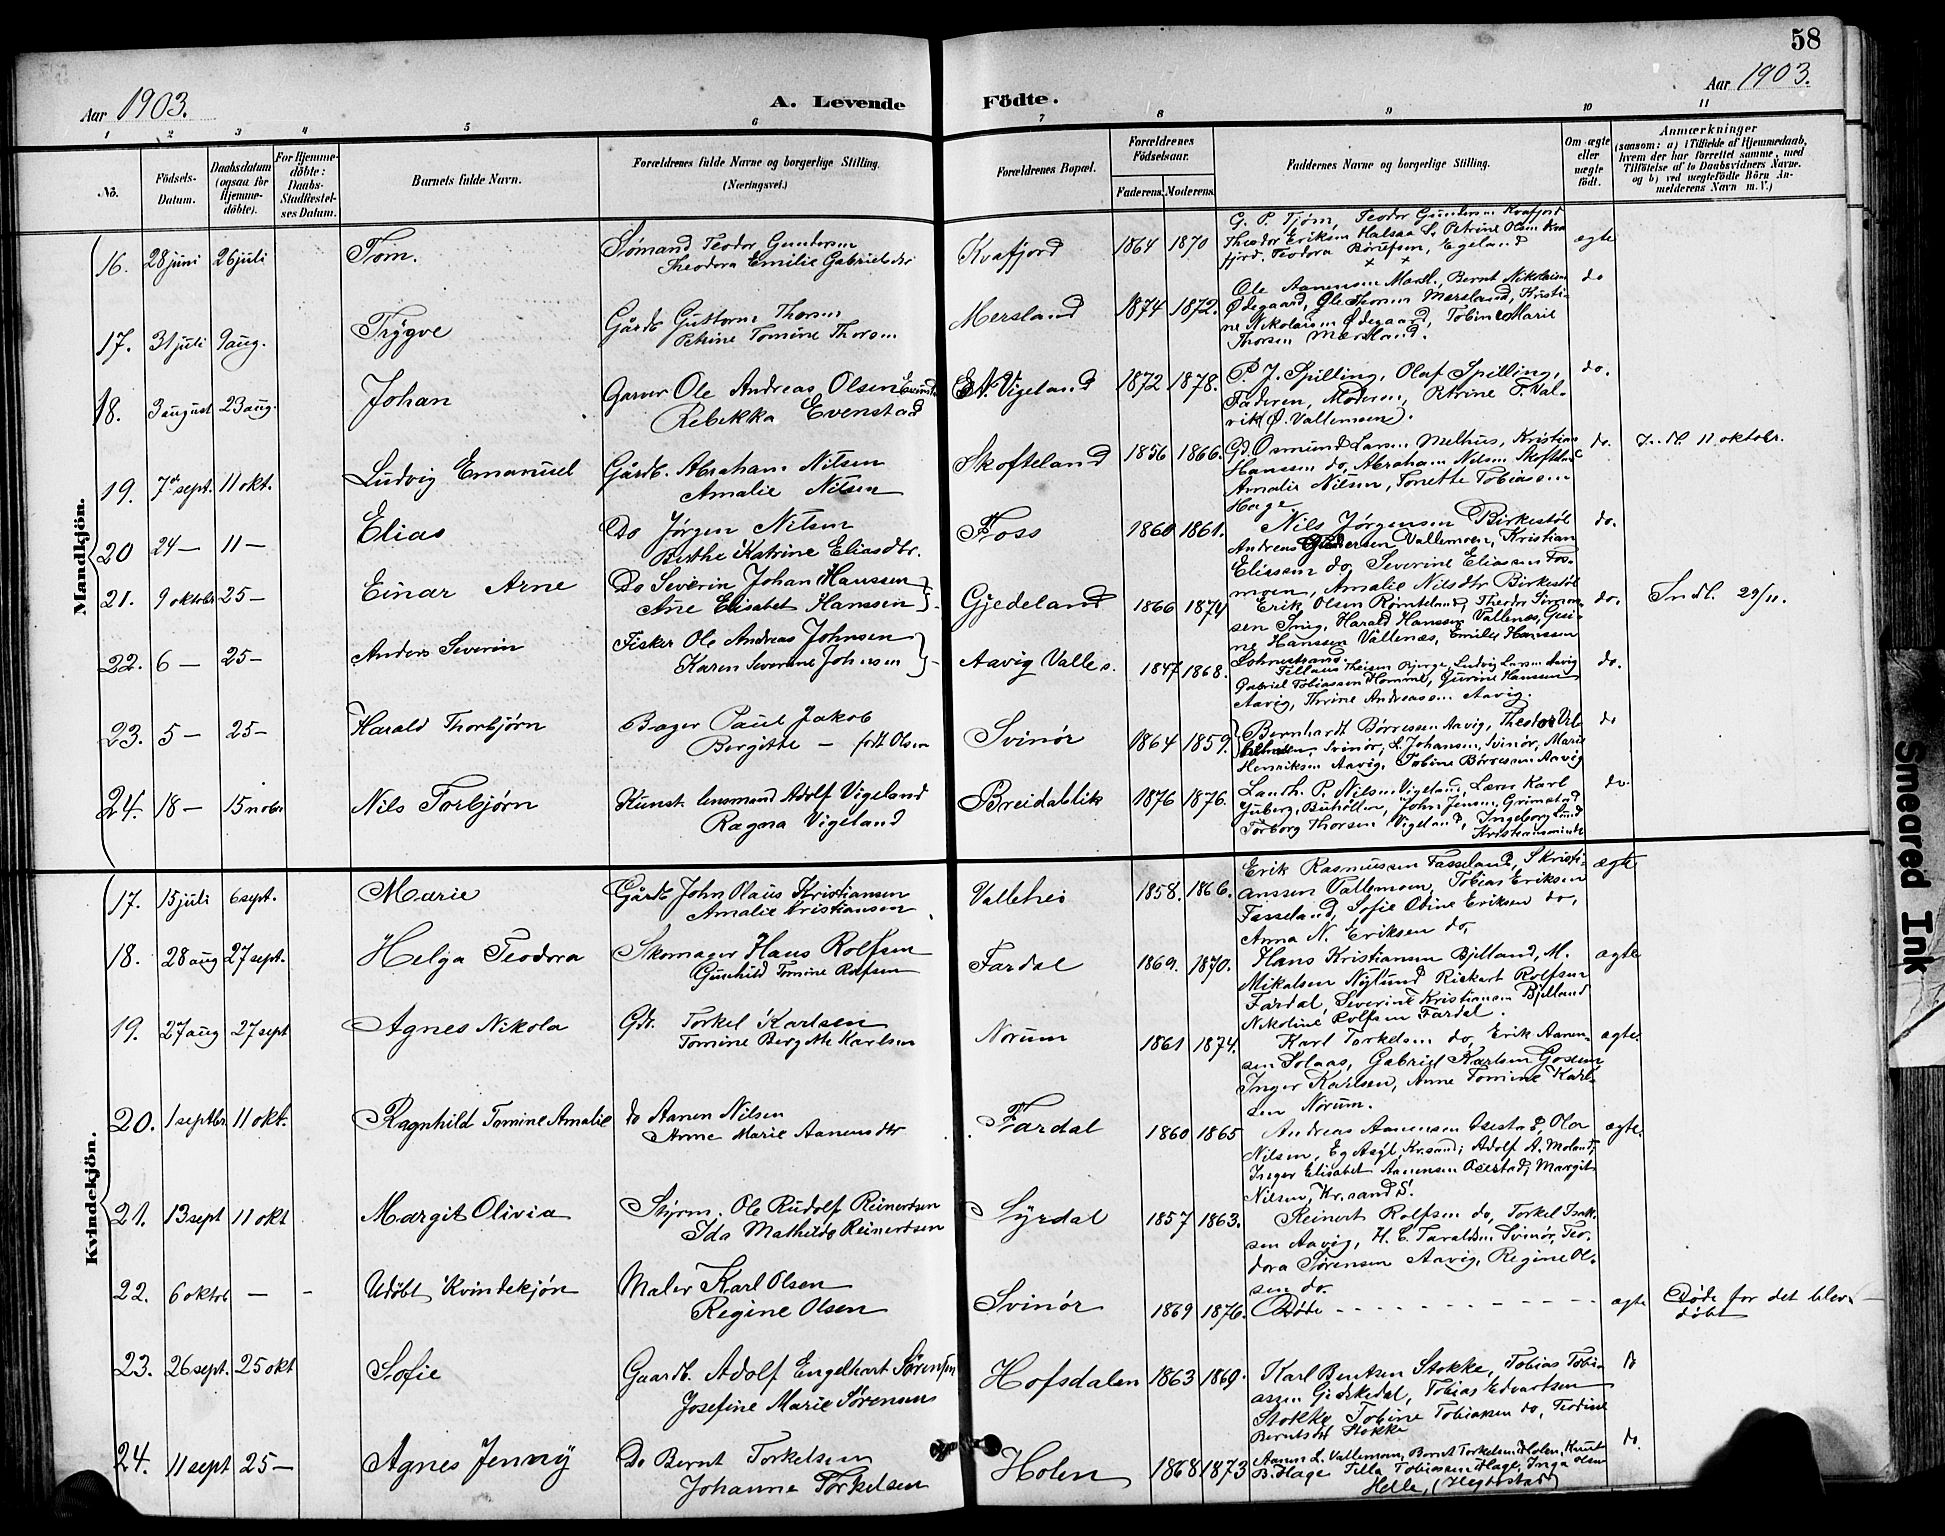 58
Aar 1903.
A. Levende Födte.
Aar 1903.
1 2 3 4 5 6 7 8 9 10 11
No.
Födsels-Datum.
Daabsdatum (ogsaa for Hjemme-döbte).
For Hjemme-döbte: Daabs-Stadfæstel-ses Datum.
Barnets fulde Navn.
Forældrenes fulde Navne og borgerlige Stilling. (Næringsvei.)
Forældrenes Bopæl.
Forældrenes Födselsaar.
Faderens. Moderens.
Faddernes Navne og borgerlige Stilling.
Om ægte eller uægte födt.
Anmærkninger
(saasom: a) i Tilfælde af Hjemmedaab,
hvem der har forrettet samme, med
Tilföielse af to Daabsvidners Navne.
og b) ved uægtefödte Börn An-
melderens Navn m. V.)
Mandkjön.
16. 28 juni 26 juli Tjøm. Sømand Teodor Gundersen
Theodora Emilie Gabrielsdtr Kvafjord 1864 1870
G. P. Tjøm, Teodor Gundersen Kvafjord
Theodor Eriksen Halsaa S. Petrine Olsen Kva
fjord. Teodora Børufsen, Egeland ægte
17. 31 juli 9 aug. Trygve Gårdb. Guttorm Thorsen
Petrine Tomine Thorsen Mersland 1874 1872.
Ole Aanensen Mersl., Bernt Nikolaisen
Ødegaard, Ole Thorsen Mersland, Kristi-
ne Nikolaisen Ødegaard, Tobine Marie
Thorsen Mersland. do
18. 3 august 23 aug. Johan Garver Ole Andreas Olsen Evenstad
Rebekka Evenstad N. Vigeland 1872 1878.
P. J. Spilling, Olaf Spilling,
Faderen, Moderen, Petrine T. Val-
vik (Ø. Vallemoen). do.
19. 7de sept. 11 okt. Ludvig Emanuel Gårdb. Abraham Nilsen
Amalie Nilsen Skofteland 1856 1866.
Gd. Osmund Larsen Melhus, Kristian
Hanssen do, Abraham Nilsen Skoftel.
Amalie Nilsen, Tonette Tobiassen
Hage do. Indl. 11 oktobr.
20 24 — 11 — Elias Do Jørgen Nilsen
Berthe Katrine Eliasdtr. Foss 1860 1861.
Nils Jørgensen Birkestøl
Andreas Gundersen Vallemoen, Kristian
Eliassen do, Severine Eliassen Fos-
moen, Amalie Nilsdtr Birkestøl do.
21. 9 oktobr 25 — Einar Arne Do Severin Johan Hanssen
Ane Elisabet Hanssen Gjedeland 1866 1874
Erik Olsen Rømteland, Theodor Simon-
sen Snig, Harald Hanssen Vallenæs, Gusi-
ne Hanssen Vallenæs, Emilie Hanssen
do. Indl. 29/11.
22. 6 — 25 — Anders Severin Fisker Ole Andreas Johnsen
Karen Severine Johnsen Aavig Valle s. 1847 1868.
Tellaus Theisen Bjerge, Ludvig Larsen Aavig
Gabriel Tobiassen Homme, Gurine Hanssen
Aavig, Thrine Andreassen Aavig. do.
23. 5 — 25 — Harald Thorbjørn Bager Paul Jakob
Bergitte — født Olsen Svinør 1864 1859.
Bernhardt Børresen Aavig, Theodor Vil-
helmsen, Svinør, L. Johansen, Svinør, Marie
Henriksen Aavig, Tobine Børresen Aavig do
24. 18 — 15 nobr Nils Torbjørn Kunst. lensmand Adolf Vigeland
Ragna Vigeland Breidablik 1876 1876.
Landh. P. Nilsen Vigeland, Lærer Karl
Juberg, Buhølten, John Jensen, Grimstad
Torborg Thorsen Vigeland, Ingeborg Lund
Kristiansminde do.
Kvindekjön.
17. 15 juli 6 sept. Marie Gårdb. John Olaus Kristiansen
Amalie Kristiansen Vallehei 1858. 1866.
Erik Rasmussen Fasseland, S. Kristi-
anssen Vallemoen, Tobias Eriksen
Fasseland, Sofie Oline Eriksen do,
Anna N. Eriksen do, ægte
18. 28 aug 27 sept. Helga Teodora Skomager Hans Rolfsen
Gunhild Tomine Rolfsen Fardal 1869. 1870.
Hans Kristiansen Bjelland, M.
Mikalsen Nylund Rickart Rolfsen
Fardal, Severine Kristiansen Bjelland
Nikoline Rolfsen Fardal. ægte
19. 27 aug 27 sept Agnes Nikola Gdr. Torkel Karlsen
Tomine Bergitte Karlsen Norum 1861 1874.
Karl Torkelsen do, Erik Aanen-
sen Solaas, Gabriel Karlsen Gosem,
Inger Karlsen, Anne Tomine Karl-
sen Norum. ægte.
20. 1 septbr 11 okt. Ragnhild Tomine Amalie do Aanen Nilsen
Anne Marie Aanensdtr Fardal 1860 1865
Andreas Aanensen Osestad, Ola
Nilsen, Eg Asyl, Kr.sand; Adolf A. Moland;
Inger Elisabet Aanensen Osestad; Margit
Nilsen, Kr.sand S. ægte.
21. 13 sept 11 okt Margit Olivia Styrm. Ole Rudolf Reinertsen
Ida Mathilde Reinertsen Syrdal 1857 1863.
Reinert Rolfsen do, Torkel Isak-
sen Aavig, H. C. Taraldsen Svinør, Teo-
dora Sørensen Aavig, Regine Ol-
sen do.
22. 6 oktbr — - Udøbt Kvindekjøn Maler Karl Olsen
Regine Olsen Svinør 1869 1876. Døde - - - - - - - - - ægte Døde før det blev
døbt
23. 26 sept. 25 okt Sofie Gaardb. Adolf Engelhart Sørensen
Josefine Marie Sørensen Hofsdalen 1863 1869.
Karl Berntsen Stokke, Tobias Tobi-
assen Gjedskedal, Tobias Edvartsen
Stokke, Tobine Tobiassen do, Teodine
Berntsdt Stokke do
24. 11 sept 25 — Agnes Jenny Do Bernt Torkelsen
Johanne Torkelsen Holen 1868 1873
Aanen L. Vallemoen, Bernt Torkelsen Holen, Knut
B. Hage Tilla Tobiassen Hage, Inga Olsen
Helle, (Hegtestad) do.
Smeared Ink